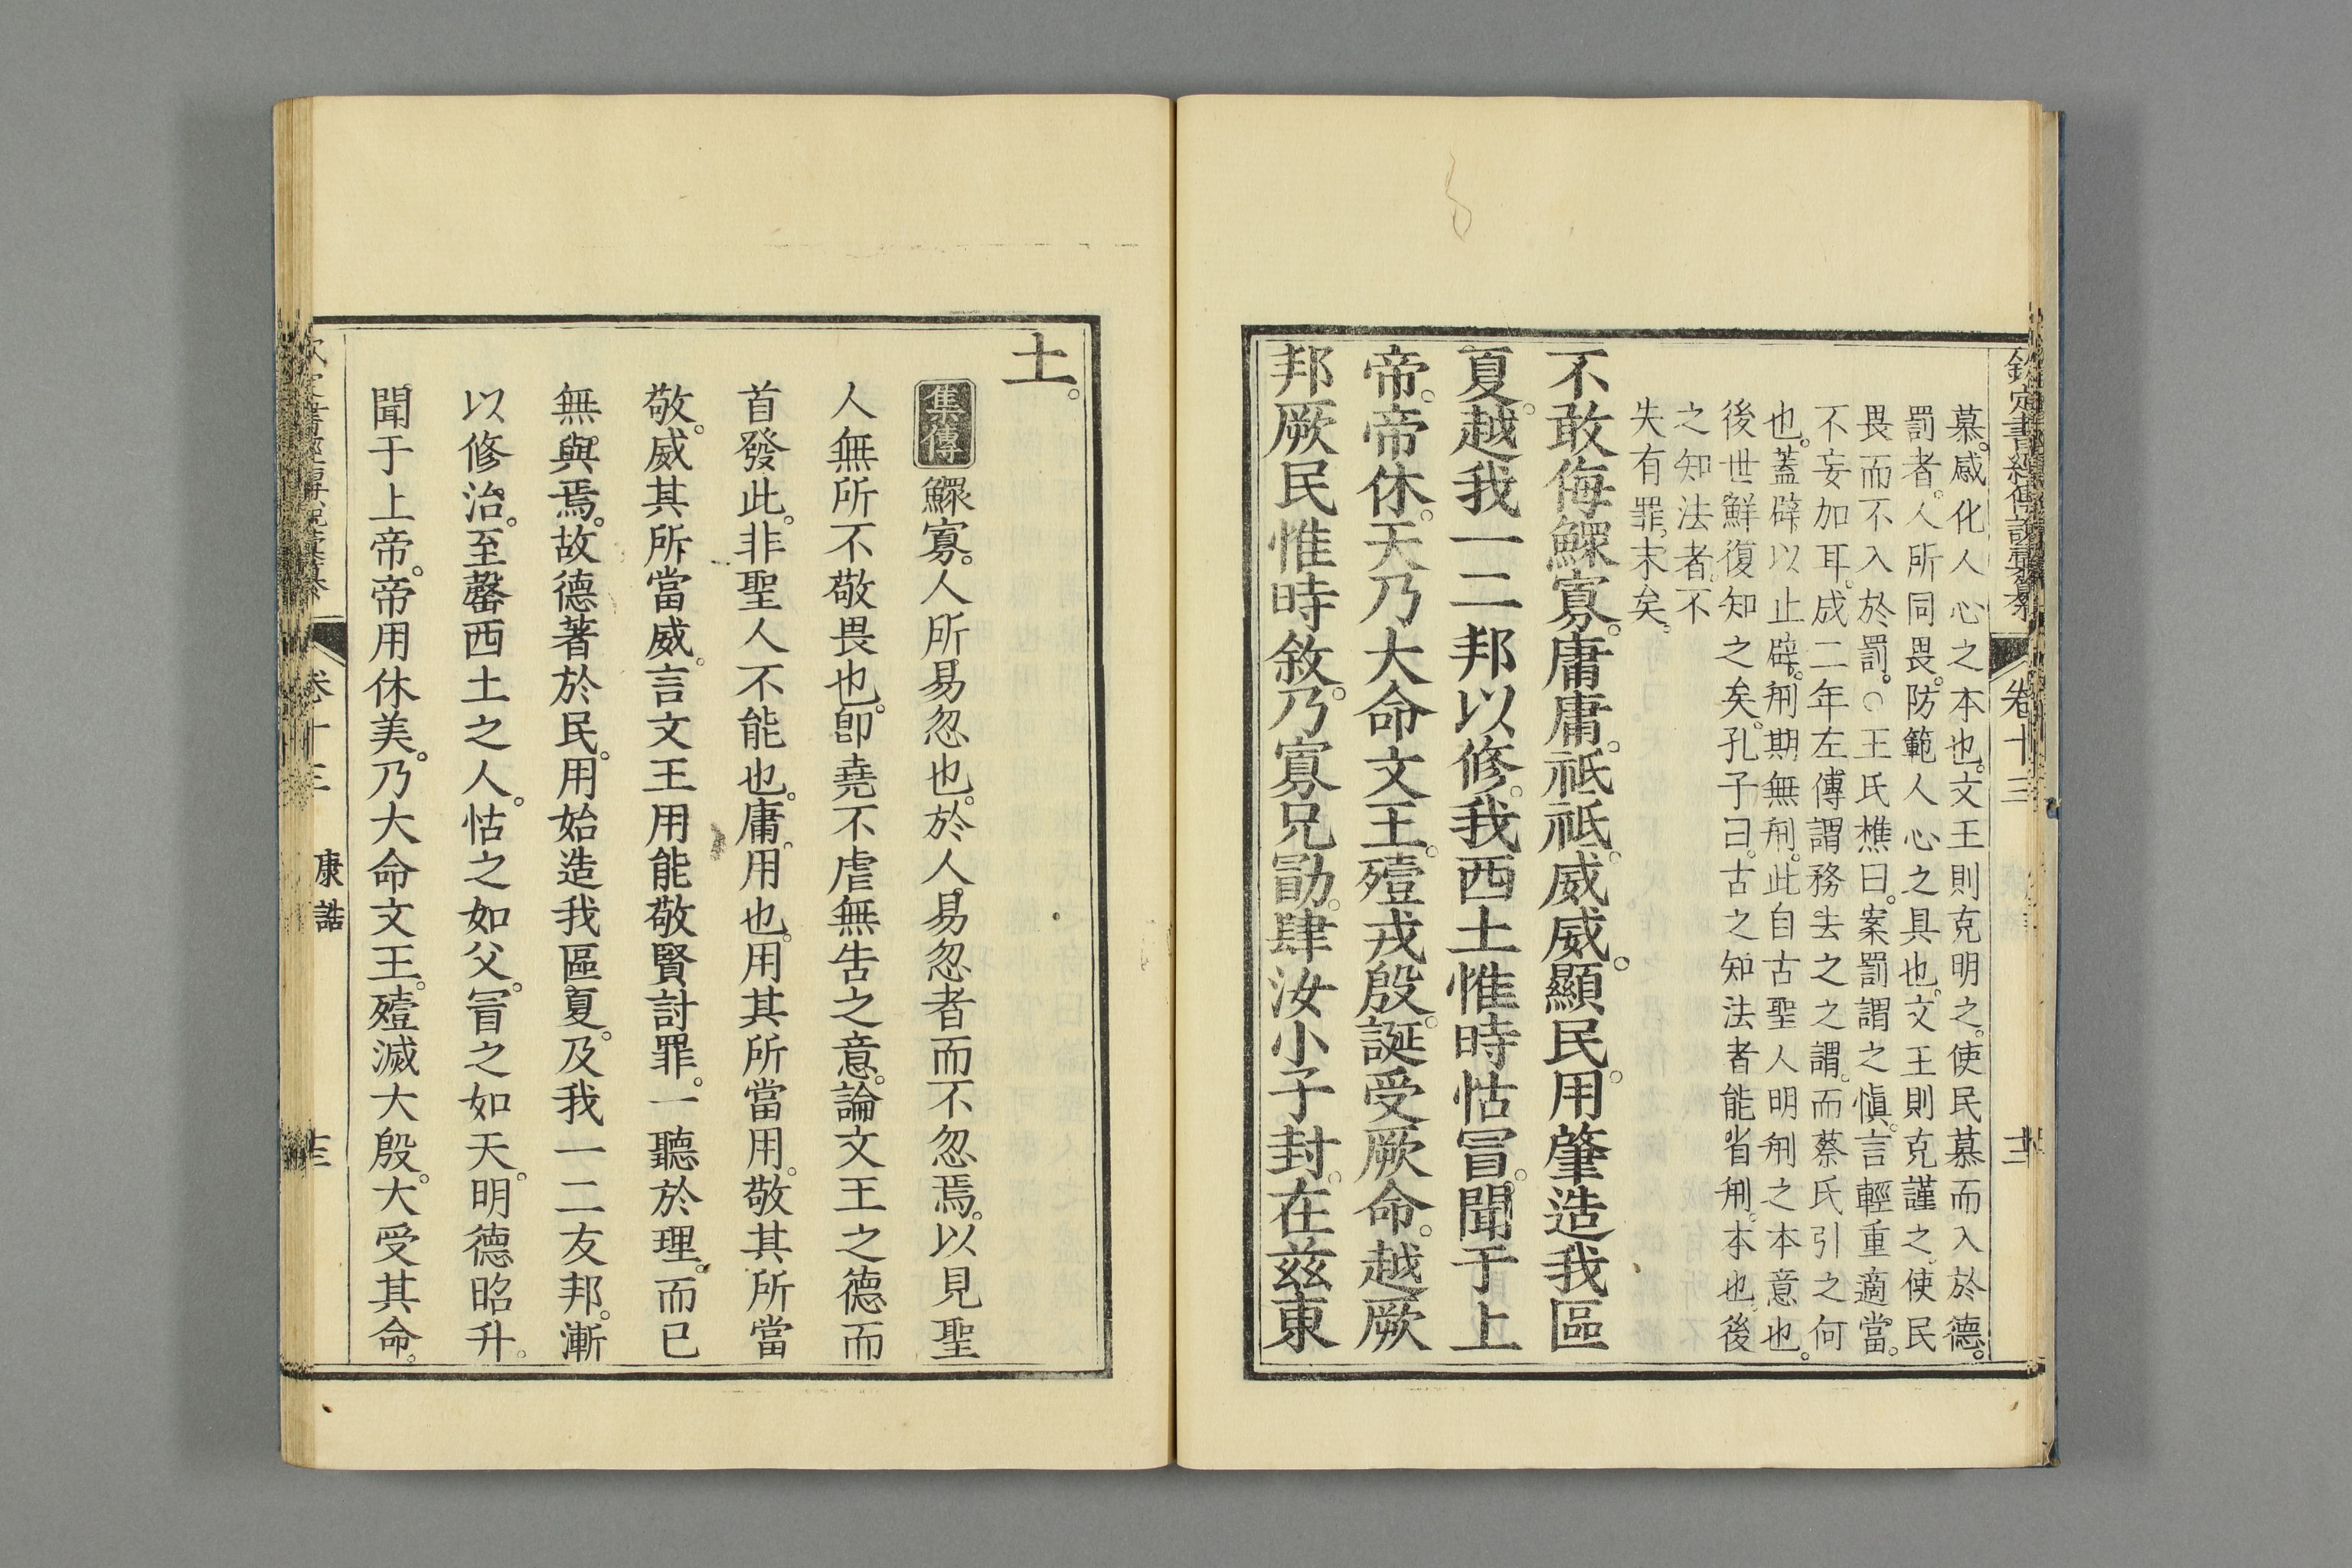 欽定書經傳說彙纂 卷十三
慕。感化人心之本也。文王則克明之。使民慕而入於德。
罰者。人所同畏。防範人心之具也。文王則克謹之。使民
畏而不入於罰。○王氏樵曰。案罰謂之愼。言輕重適當。
不妄加耳。成二年左傳謂務去之之謂。而蔡氏引之何
也。蓋辟以止辟。刑期無刑。此自古聖人明刑之本意也。
後世鮮復知之矣。孔子曰。古之知法者能省刑。本也。後
之知法者。不
失有罪。末矣。
不敢侮鰥寡。庸庸。祗祗。威威。顯民。用肇造我區
夏。越我一二邦以修。我西土惟時怙冒。聞于上
帝。帝休。天乃大命文王。殪戎殷。誕受厥命。越厥
邦厥民惟時敘。乃寡兄勖。肆汝小子封。在茲東
土。
集傳 鰥寡。人所易忽也。於人易忽者而不忽焉。以見聖
人無所不敬畏也。卽堯不虐無告之意。論文王之德而
首發此。非聖人不能也。庸。用也。用其所當用。敬其所當
敬。威其所當威。言文王用能敬賢討罪。一聽於理。而已
無與焉。故德著於民。用始造我區夏。及我一二友邦。漸
以修治。至罄西土之人。怙之如父。冒之如天。明德昭升。
聞于上帝。帝用休美。乃大命文王。殪滅大殷。大受其命。
卷十三 康誥